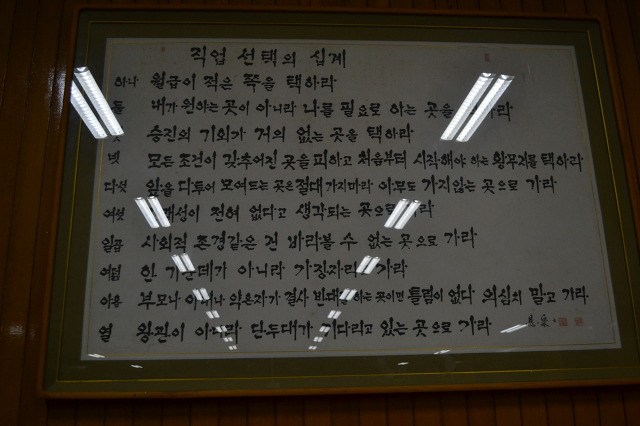 직업 선택의 십계
하나 월급이 적은 쪽을 택하라
둘 내가 원하는 곳이 아니라 나를 필요로 하는 곳을 라
승진의 기회가 거의 없는 곳을 택하라
넷 모든 조건이 갖추어진 곳을 피하고 처음부터 시작해야 하는 황무지를 택하라
다섯 앞을 다투어 모여드는 곳은 절대 가지마라 아무도 가지않는 곳으로 가라
여섯 래성이 전혀 없다고 생각되는 곳으로 라
일곱 사회적 존경같은 건 바라볼 수 없는 곳으로 가라
여덟 한 가운데가 아니라 가장자리 가라
아홉 부모나 아내나 약혼자가 결사 반대를 하는 곳이면 틀림이 없다 의심치 말고 가라
열 왕관이 아니라 단두대가 기다리고 있는 곳으로 가라